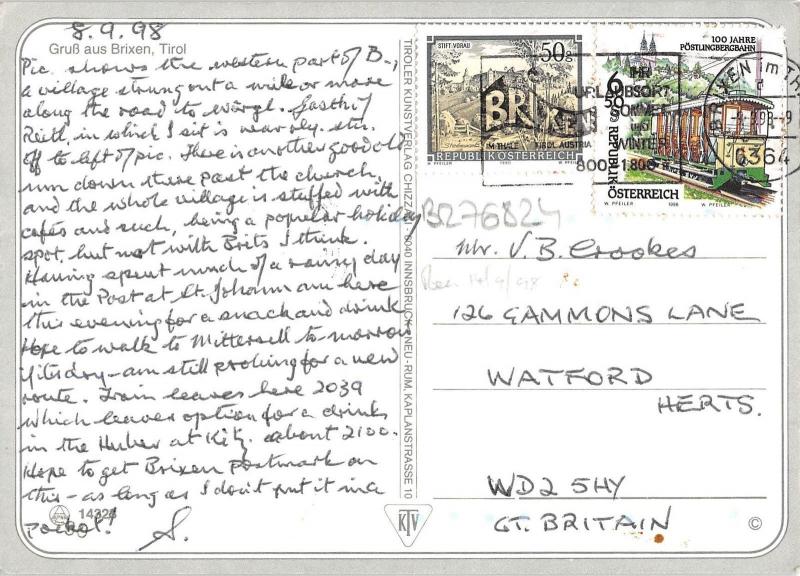 8.9.98
Gruß aus Brixen, Tirol
Pic. shows the western part of B-,
a village strung out a mile or more
along the road to Wörgl. Gasthof
Reith, in which I sit is wayoly. stn.
off to left of pic. There is another good old
inn down there past the church,
and the whole village is stuffed with
cafés and such, being a popular holiday
spot, but not with Brits I think.
Having spent much of a rainy day
in the Post at St. Johann am here
this evening for a snack and drink
Hope to walk to Mittersell to morrow
Yitsrday - am still probing for a new
route. Train leaves here 2039
which leaves option for a drink
in the Huber at Kitz. about 2100.
Hope to get Brixen postmark on
this - as long as I don't put it in a
S.
14324
TIROLER KUNSTVERLAG CHIZZALI 6040 INNSBRUCK-NEU-RUM, KAPLANSTRASSE 10
KTV
©
STIFT VORAU
50g
REPUBLIK ÖSTERREICH
W. PFEILER
1990
100 JAHRE
PÖSTLINGBERGBAHN
6 50 S
REPUBLIK
ÖSTERREICH
W. PFEILER 1998 W. PFEILER
BRIXEN
IM THALE TIROL AUSTRIA
IHR
URLAUBSORT
SOMMER
UND
WINTER
800-1800m
BRIXEN im TH
-9.9.98-9
6364
B276824
Mr. V. B. Crookes
Rec. 14/9/98
126 GAMMONS LANE
WATFORD
HERTS.
WD2 5HY
GT. BRITAIN